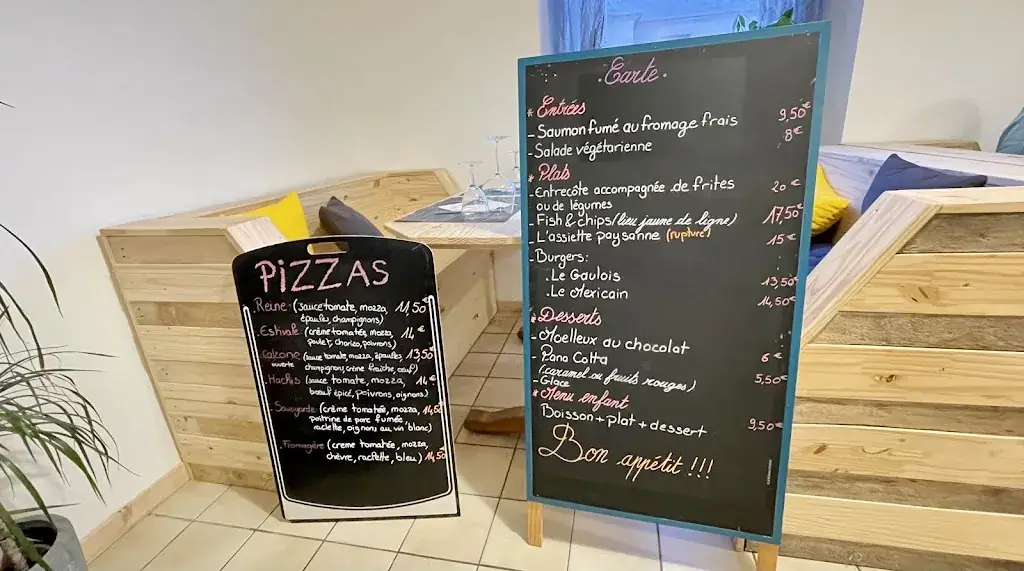 PiZZAS
Reine (sauce tomate, mozza, 11,50
épaules, champignons)
Estivale (crème tomatée, mozza, 14€
poulet, chorizo, poivrons)
Calzone (sauce tomate, mozza, épaules 13,50
ouverte champignons, crème fraîche, oeuf)
Hachis (sauce tomate, mozza, 14€
bœuf épicé, poivrons, oignons)
Savoyarde (crème tomatée, mozza, 14,50
poitrine de porc fumée,
raclette, oignons au vin blanc)
Fromagère (creme tomatée, mozza,
chèvre, raclette, bleu) 14,50
.Carte.
* Entrées
- Saumon fumé au fromage frais 9,50€
- Salade végétarienne 8€
* Plats
- Entrecôte accompagnée de frites 20€
ou de légumes
- Fish & chips (lieu jaune de ligne) 17,50€
- L'assiette paysanne (rupture) 15€
- Burgers:
. Le Gaulois 13,50€
. Le Mexicain 14,50€
* Desserts
- Moelleux au chocolat 6€
- Pana Cotta 5,50€
(caramel ou fruits rouges)
- Glace
* Menu enfant
Boisson + plat + dessert 9,50€
Bon appétit !!!